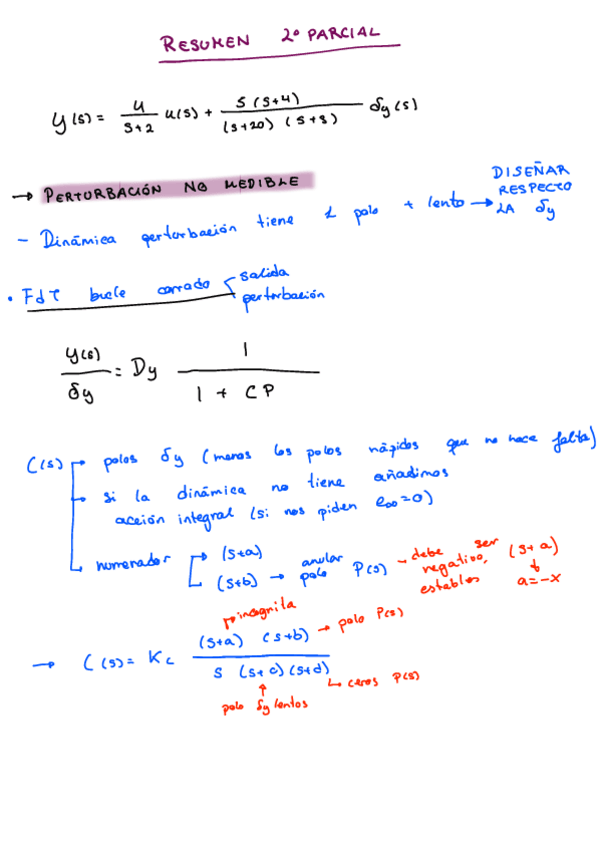 RESUMEN 2º PARCIAL
y(s) = 4/(s+2) u(s) + s(s+4)/((s+20)(s+8)) δy(s)
→ PERTURBACIÓN NO MEDIBLE
- Dinámica perturbación tiene 1 polo + lento → DISEÑAR RESPECTO LA δy
• FdT bucle cerrado
salida
perturbación
y(s)/δy = Dy 1/(1 + CP)
C(s) → polos δy (menos los polos rápidos que no hace falta)
→ si la dinámica no tiene añadimos
acción integral (si nos piden e∞=0)
numerador → (s+a)
(s+b) → anular polo P(s) → debe ser negativo, estables (s+a) a=-x
incógnita
→ C(s) = Kc (s+a) (s+b)/(s (s+c)(s+d)) → polo P(s)
→ ceros P(s)
polo δy lentos